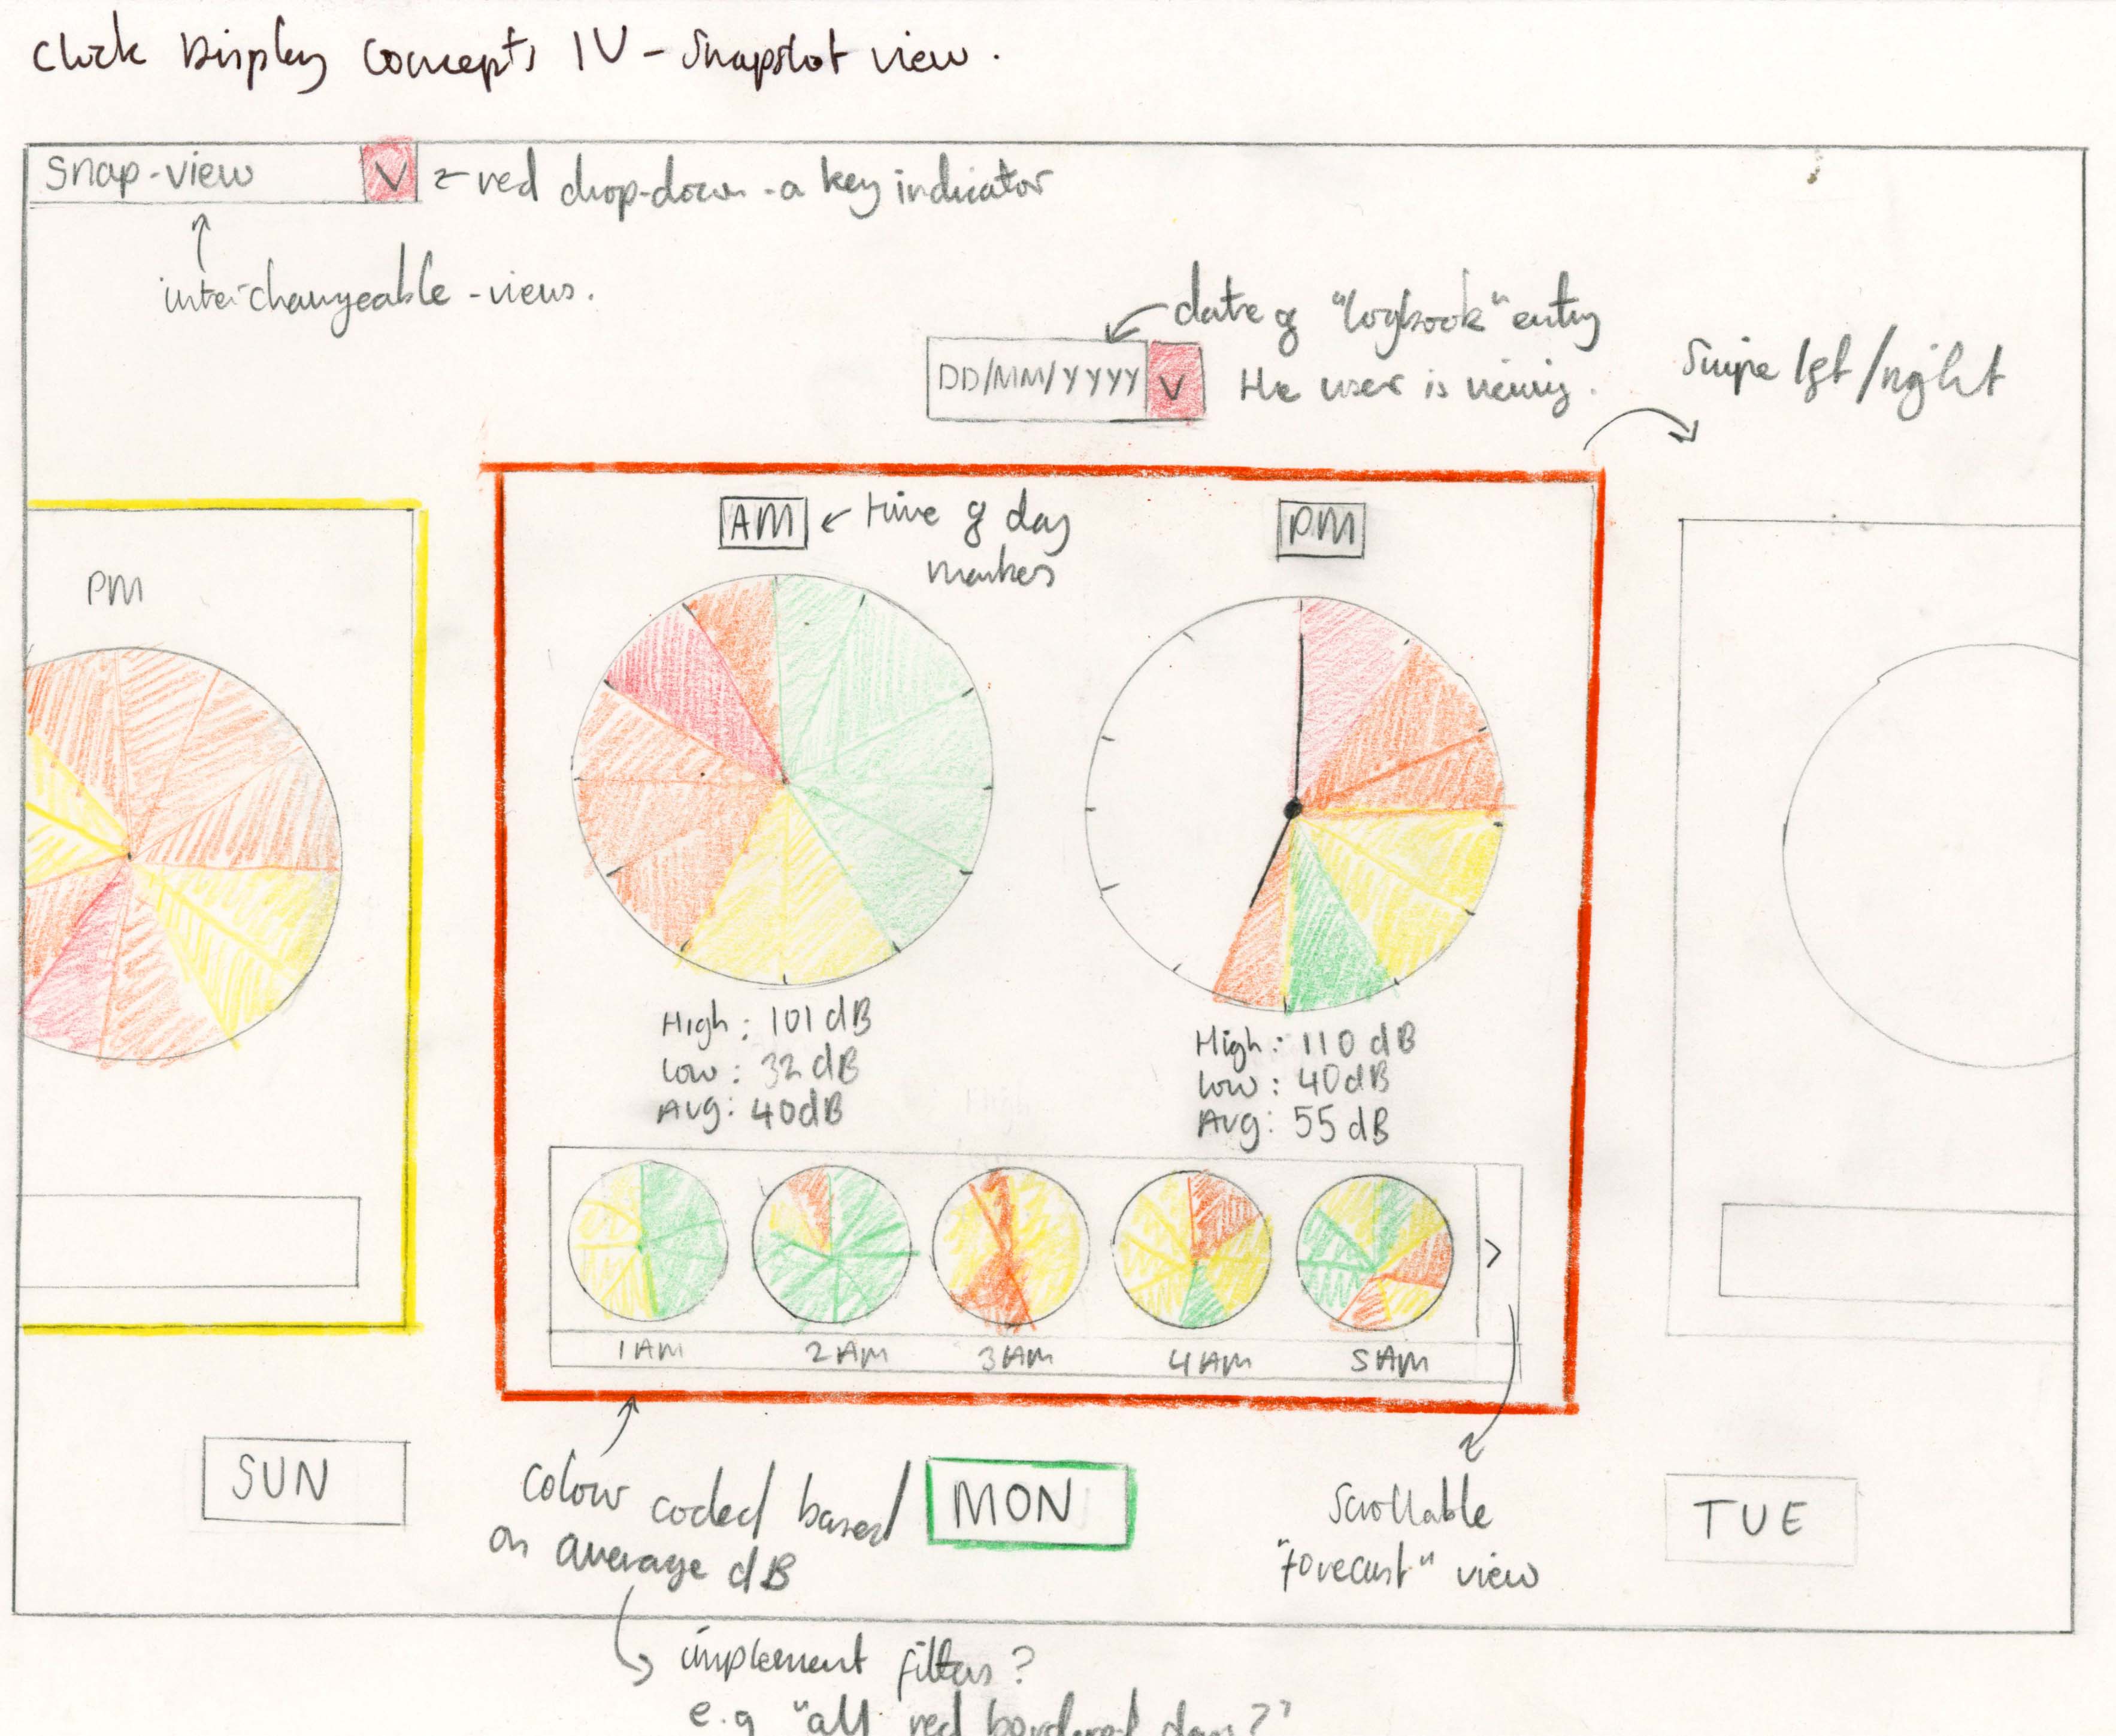 Clock Display Concepts IV - Snapshot view.
Snap-view V ← red drop-down - a key indicator
interchangeable - views.
date of "logbook" entry
DD/MM/YYYY V the user is viewing.
Swipe left/right
AM ← time of day
markers
PM
PM
High: 101 dB
Low: 32 dB
Avg: 40dB
High: 110 dB
Low: 40dB
Avg: 55 dB
>
1AM 2AM 3AM 4AM 5AM
SUN
MON
TUE
Colour coded based
on average dB
Scrollable
"forecast" view
implement filters?
e.g "all red bordered days?"